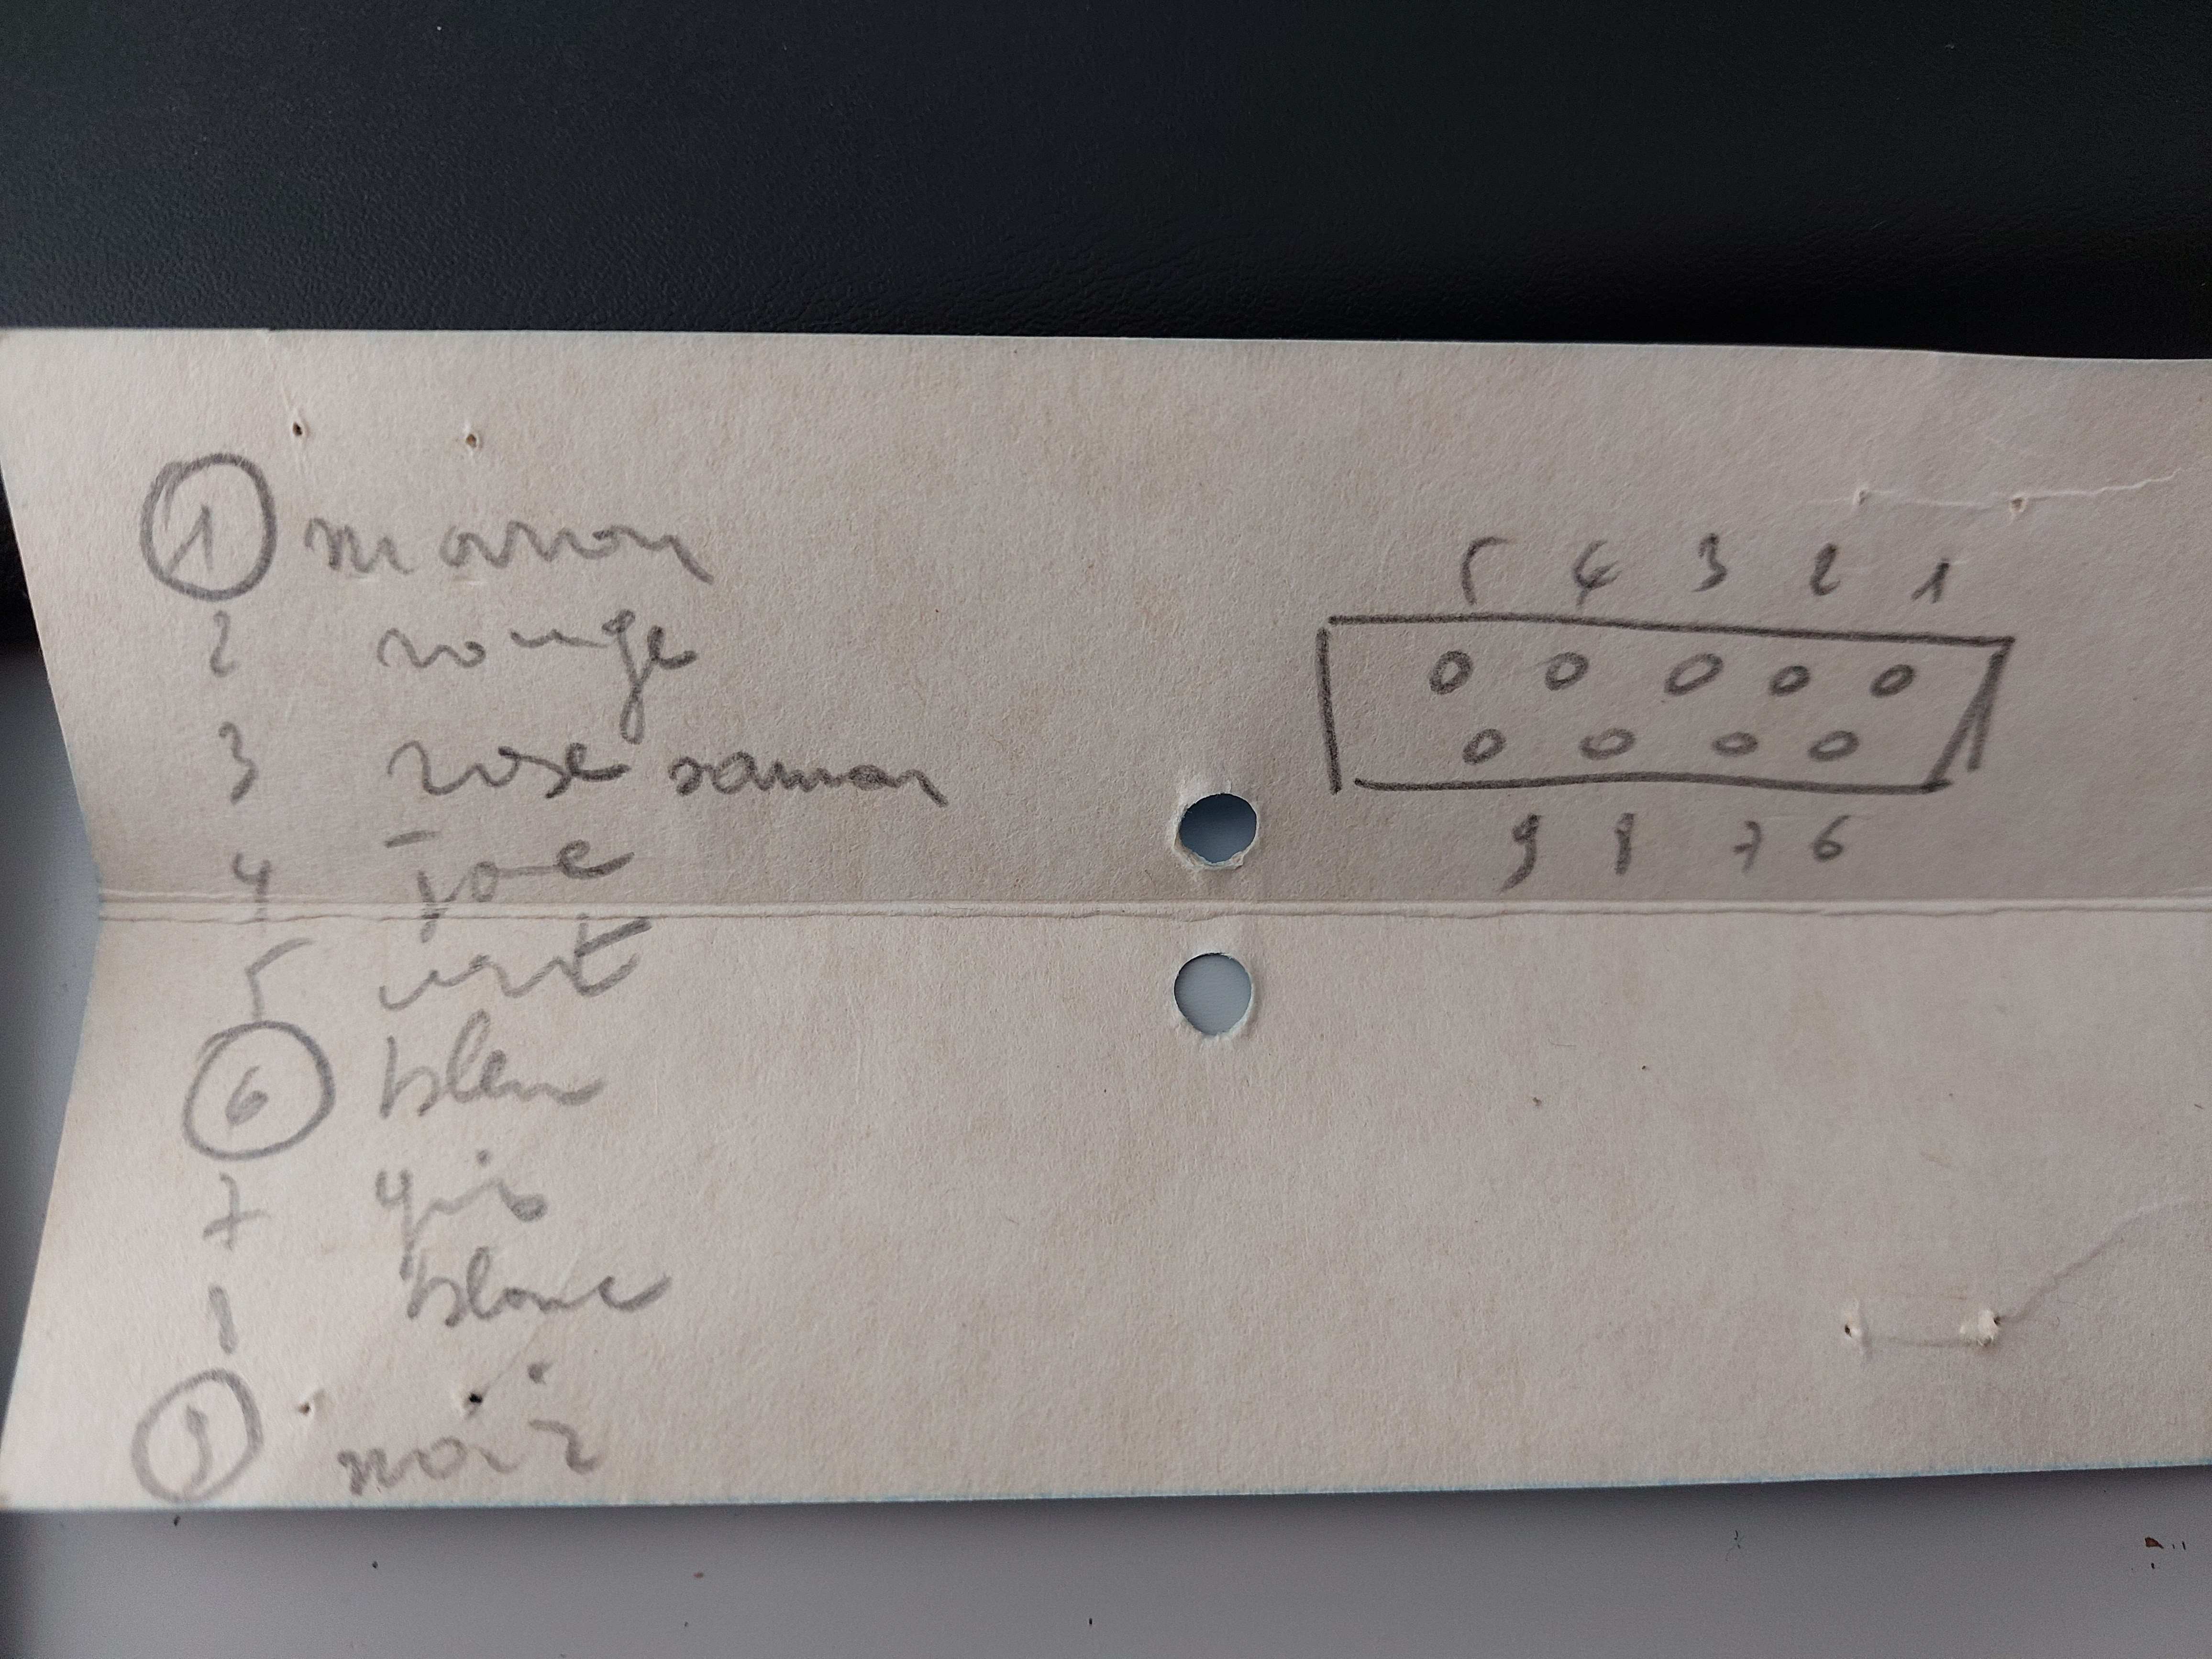 1 marron
2 rouge
3 rose saumon
4
5 vert
6 bleu
7 gris
8 blanc
9 noir
5 4 3 2 1
9 8 7 6